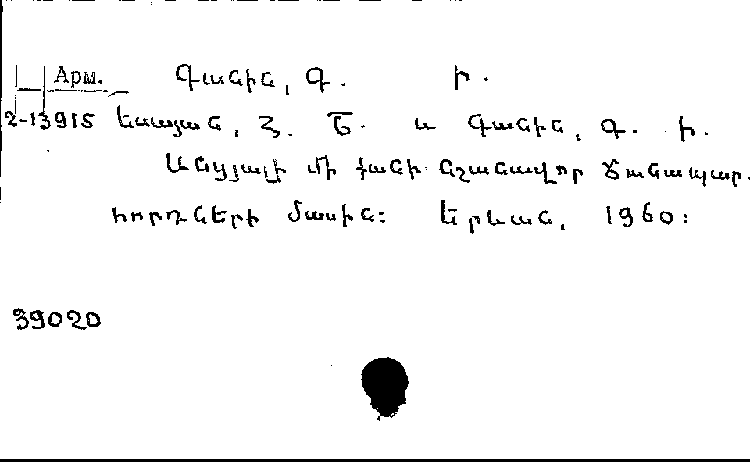 Арм. Գանին, Գ. Ի.
2-13915 Եսայան, Հ. Ե. և Գանին, Գ. Ի.
Անցյալի մի քանի նշանավոր ճանապար.
հորդների մասին: Երևան, 1960:
39020